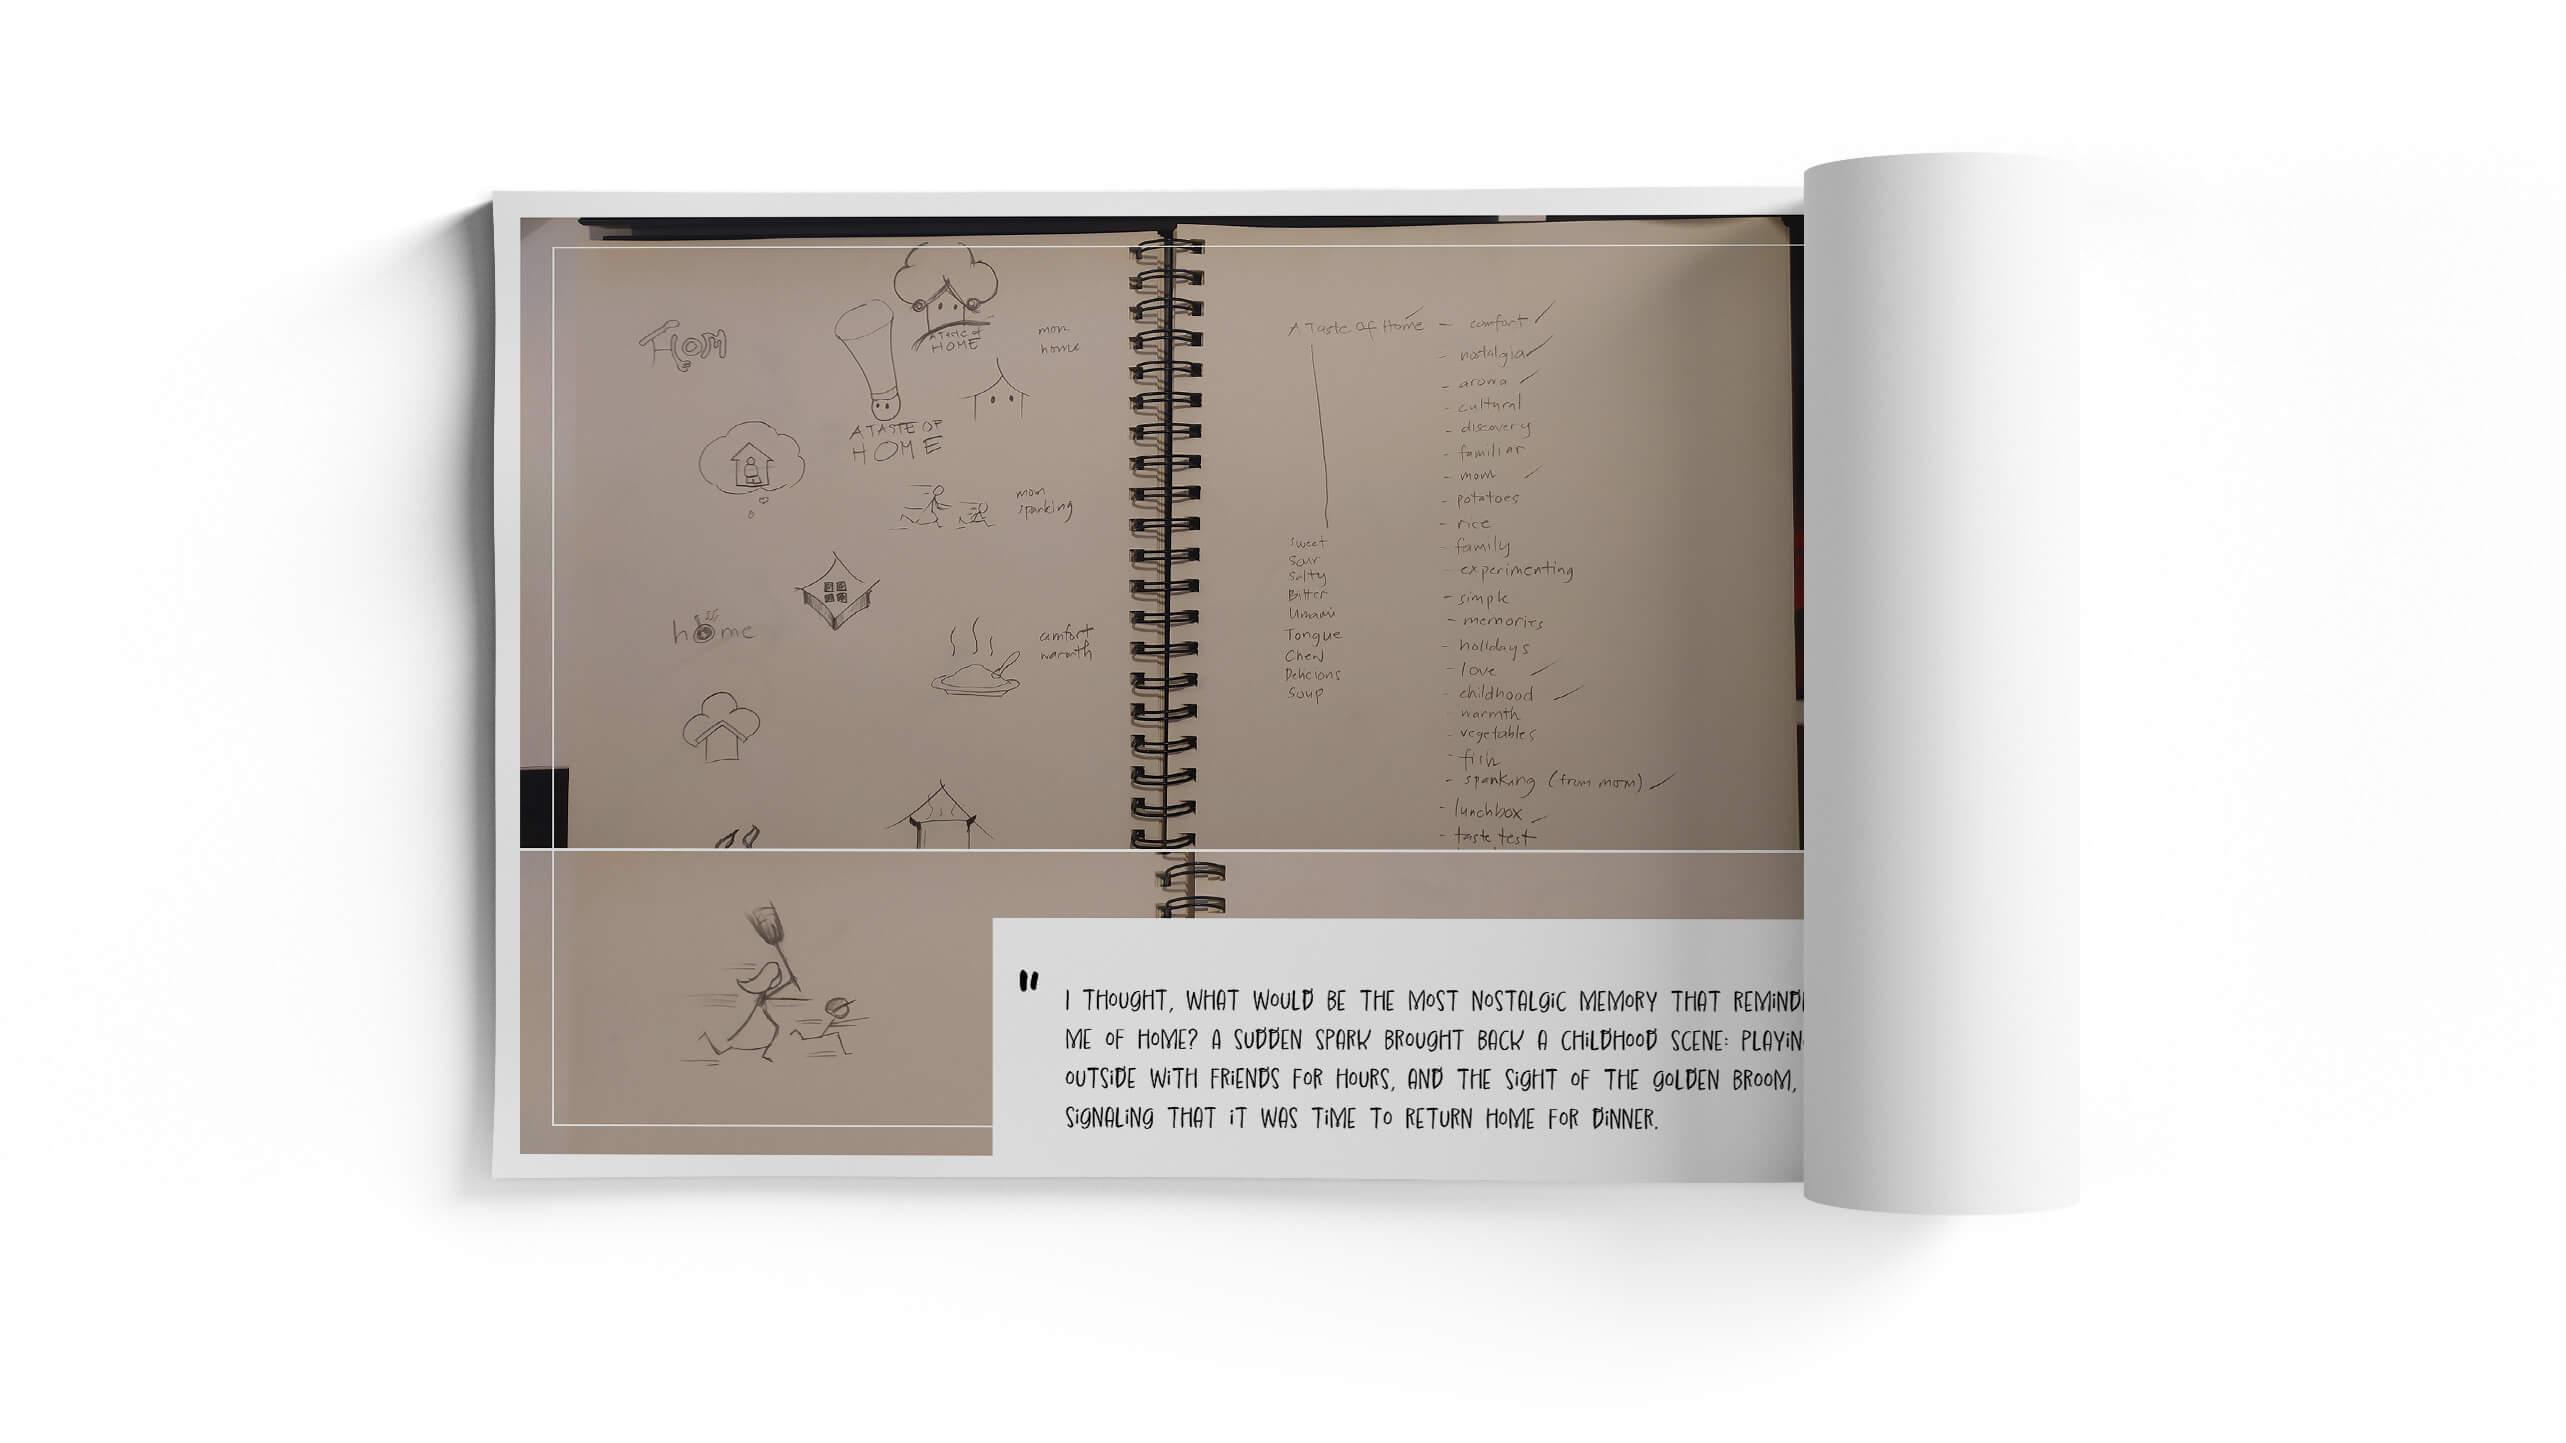 HOM
A Taste of
HOME
mom
home
A TASTE OF
HOME
mom
spanking
home
comfort
warmth
A Taste Of Home - comfort
- nostalgia
- aroma
- cultural
- discovery
- familiar
- mom
- potatoes
- rice
- family
- experimenting
- simple
- memories
- holidays
- love
- childhood
- warmth
- vegetables
- fish
- spanking (from mom)
- lunchbox
- taste test
Sweet
Sour
Salty
Bitter
Umami
Tongue
Chew
Delicious
Soup
" I THOUGHT, WHAT WOULD BE THE MOST NOSTALGIC MEMORY THAT REMIND
ME OF HOME? A SUDDEN SPARK BROUGHT BACK A CHILDHOOD SCENE: PLAYIN
OUTSIDE WITH FRIENDS FOR HOURS, AND THE SIGHT OF THE GOLDEN BROOM,
SIGNALING THAT IT WAS TIME TO RETURN HOME FOR DINNER.